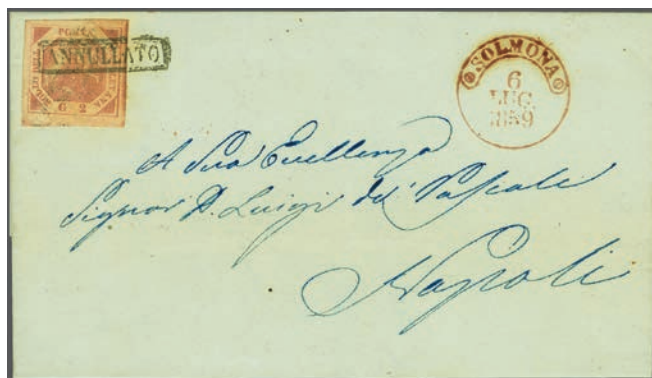 ANNULLATO
G 2
SOLMONA
6
LUG.
1859
A Sua Eccellenza
Signor D. Luigi de' Pascali
Napoli